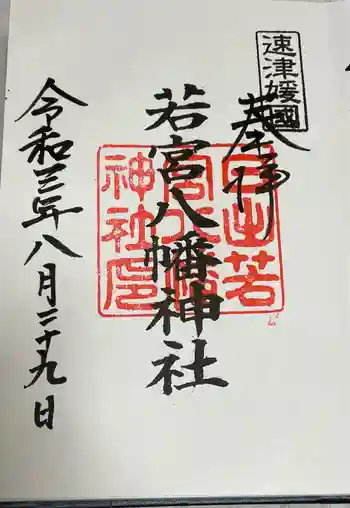 速津媛國
奉拝
若宮八幡神社
日出若
宮八幡
神社印
令和三年八月二十九日